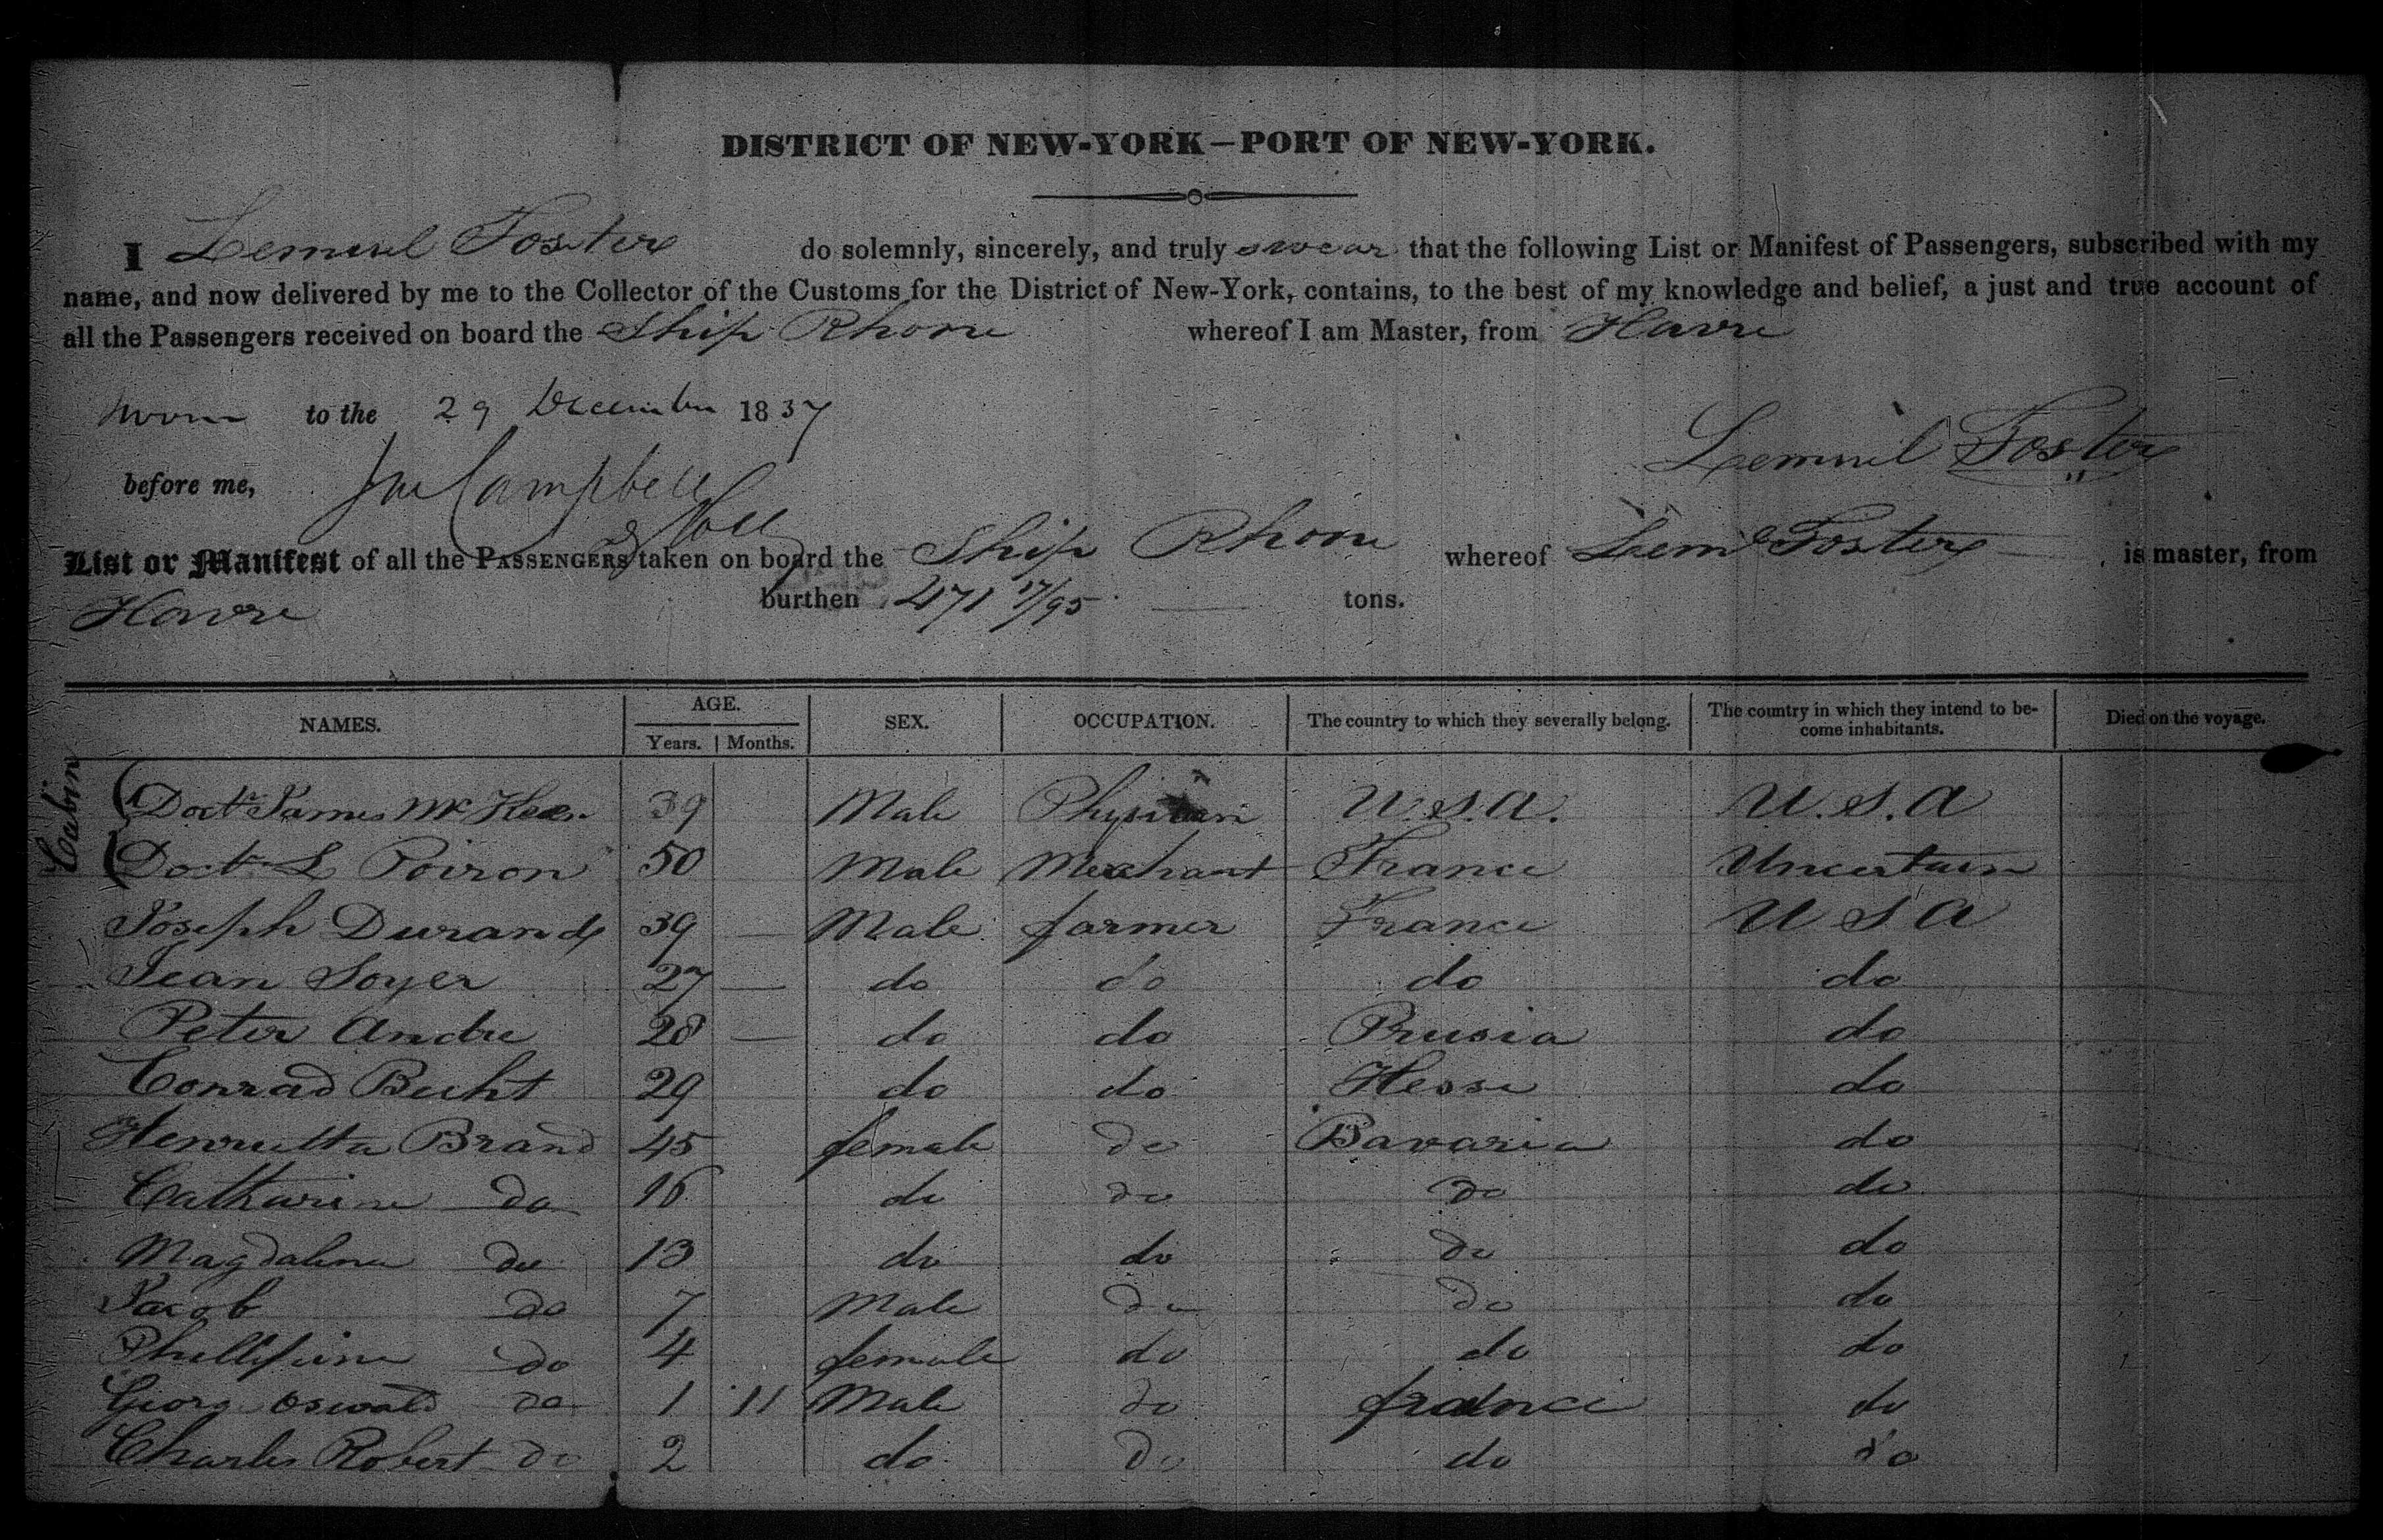 DISTRICT OF NEW-YORK—PORT OF NEW-YORK.
I Lemuel Foster do solemnly, sincerely, and truly swear that the following List or Manifest of Passengers, subscribed with my
name, and now delivered by me to the Collector of the Customs for the District of New-York, contains, to the best of my knowledge and belief, a just and true account of
all the Passengers received on board the Ship Rhone whereof I am Master, from Havre
to the 29 December 1837
Lemuel Foster
before me, Campbell
List or Manifest of all the PASSENGERS taken on board the Ship Rhone whereof Leml Foster is master, from
Havre burthen 471 17/95 tons.
NAMES. AGE. Years. Months. SEX. OCCUPATION. The country to which they severally belong. The country in which they intend to become inhabitants. Died on the voyage.
Cabin
Doctr James Mc 39 Male Physician U.S.A. U.S.A
Doctr L Poiron 50 Male Merchant France Uncertain
Joseph Durand 39 — Male farmer France U S A
Jean Soyer 27 — do do do do
Peter Andre 28 — do do Prusia do
Conrad Bucht 29 do do Hesse do
Henrietta Brand 45 female do Bavaria do
Catharine do 16 do do do do
Magdalena do 13 do do do do
Jacob do 7 Male do do do
Phillipine do 4 female do do do
Georg Oswald do 1 11 Male do france do
Charles Robert do 2 do do do do